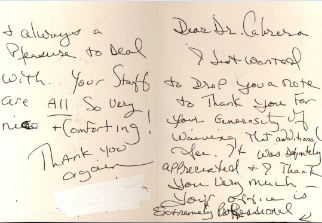 Dear Dr. Cabrera
I Just wanted
to Drop you a note
to Thank you for
your Generosity of
Waiving That additional
fee. It was definitely
appreciated & I Thank
you Very much -
Your office is
Extremely Professional
& always a
Pleasure to Deal
With. Your Staff
are All So very
nice & Comforting!
Thank you
again